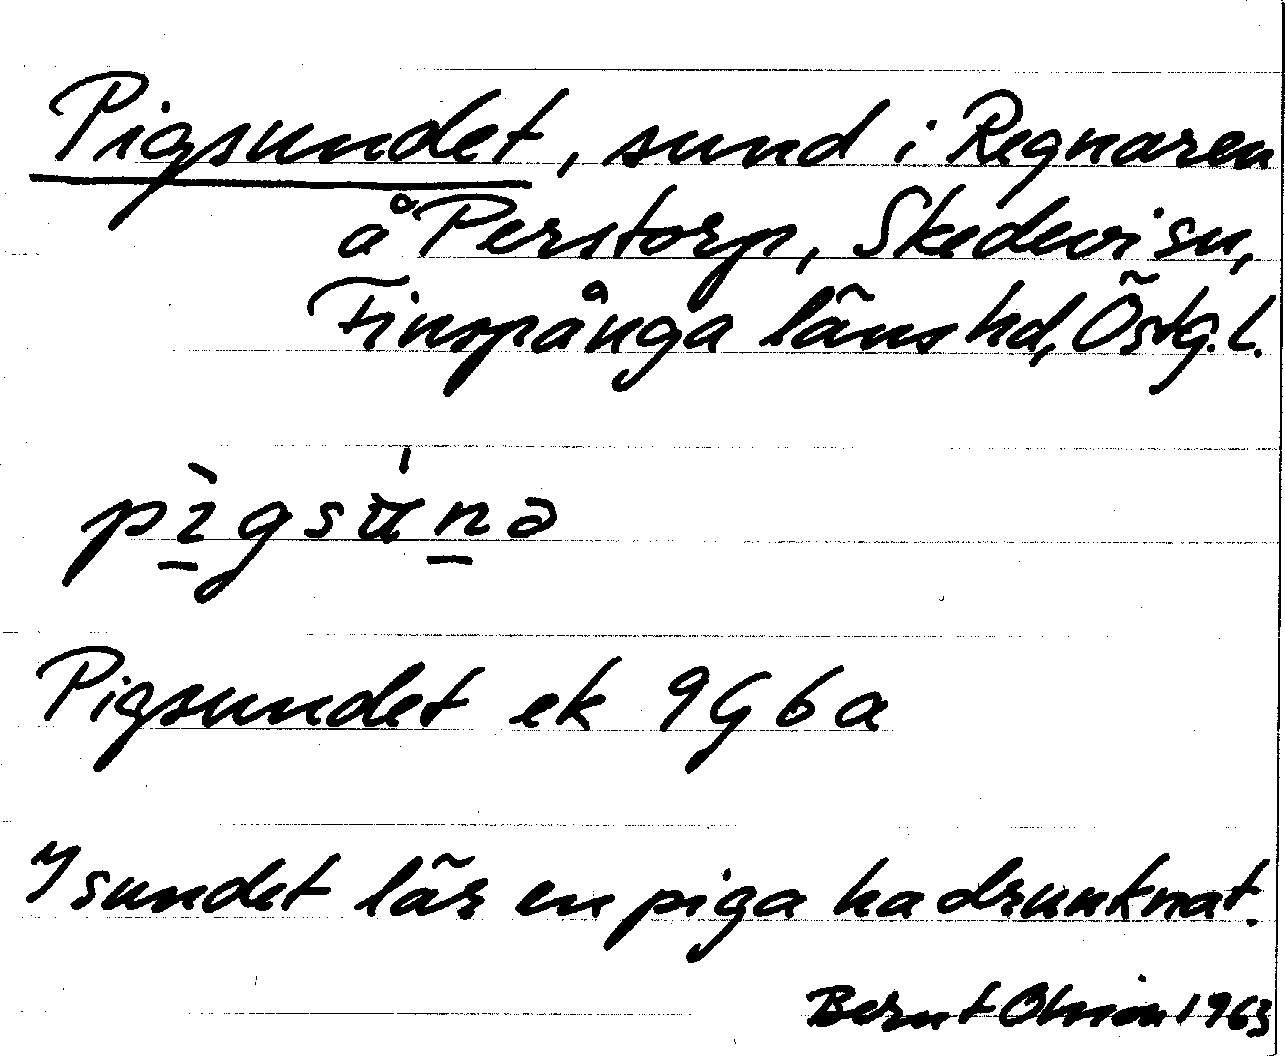 Pigsundet, sund i Regnaren
å Perstorp, Skedevi sn,
Finspånga läns hd, Östg. l.
pìgsu̇́nə
Pigsundet ek 9G6a
I sundet lär en piga ha drunknat.
Bernt Olsson 1963